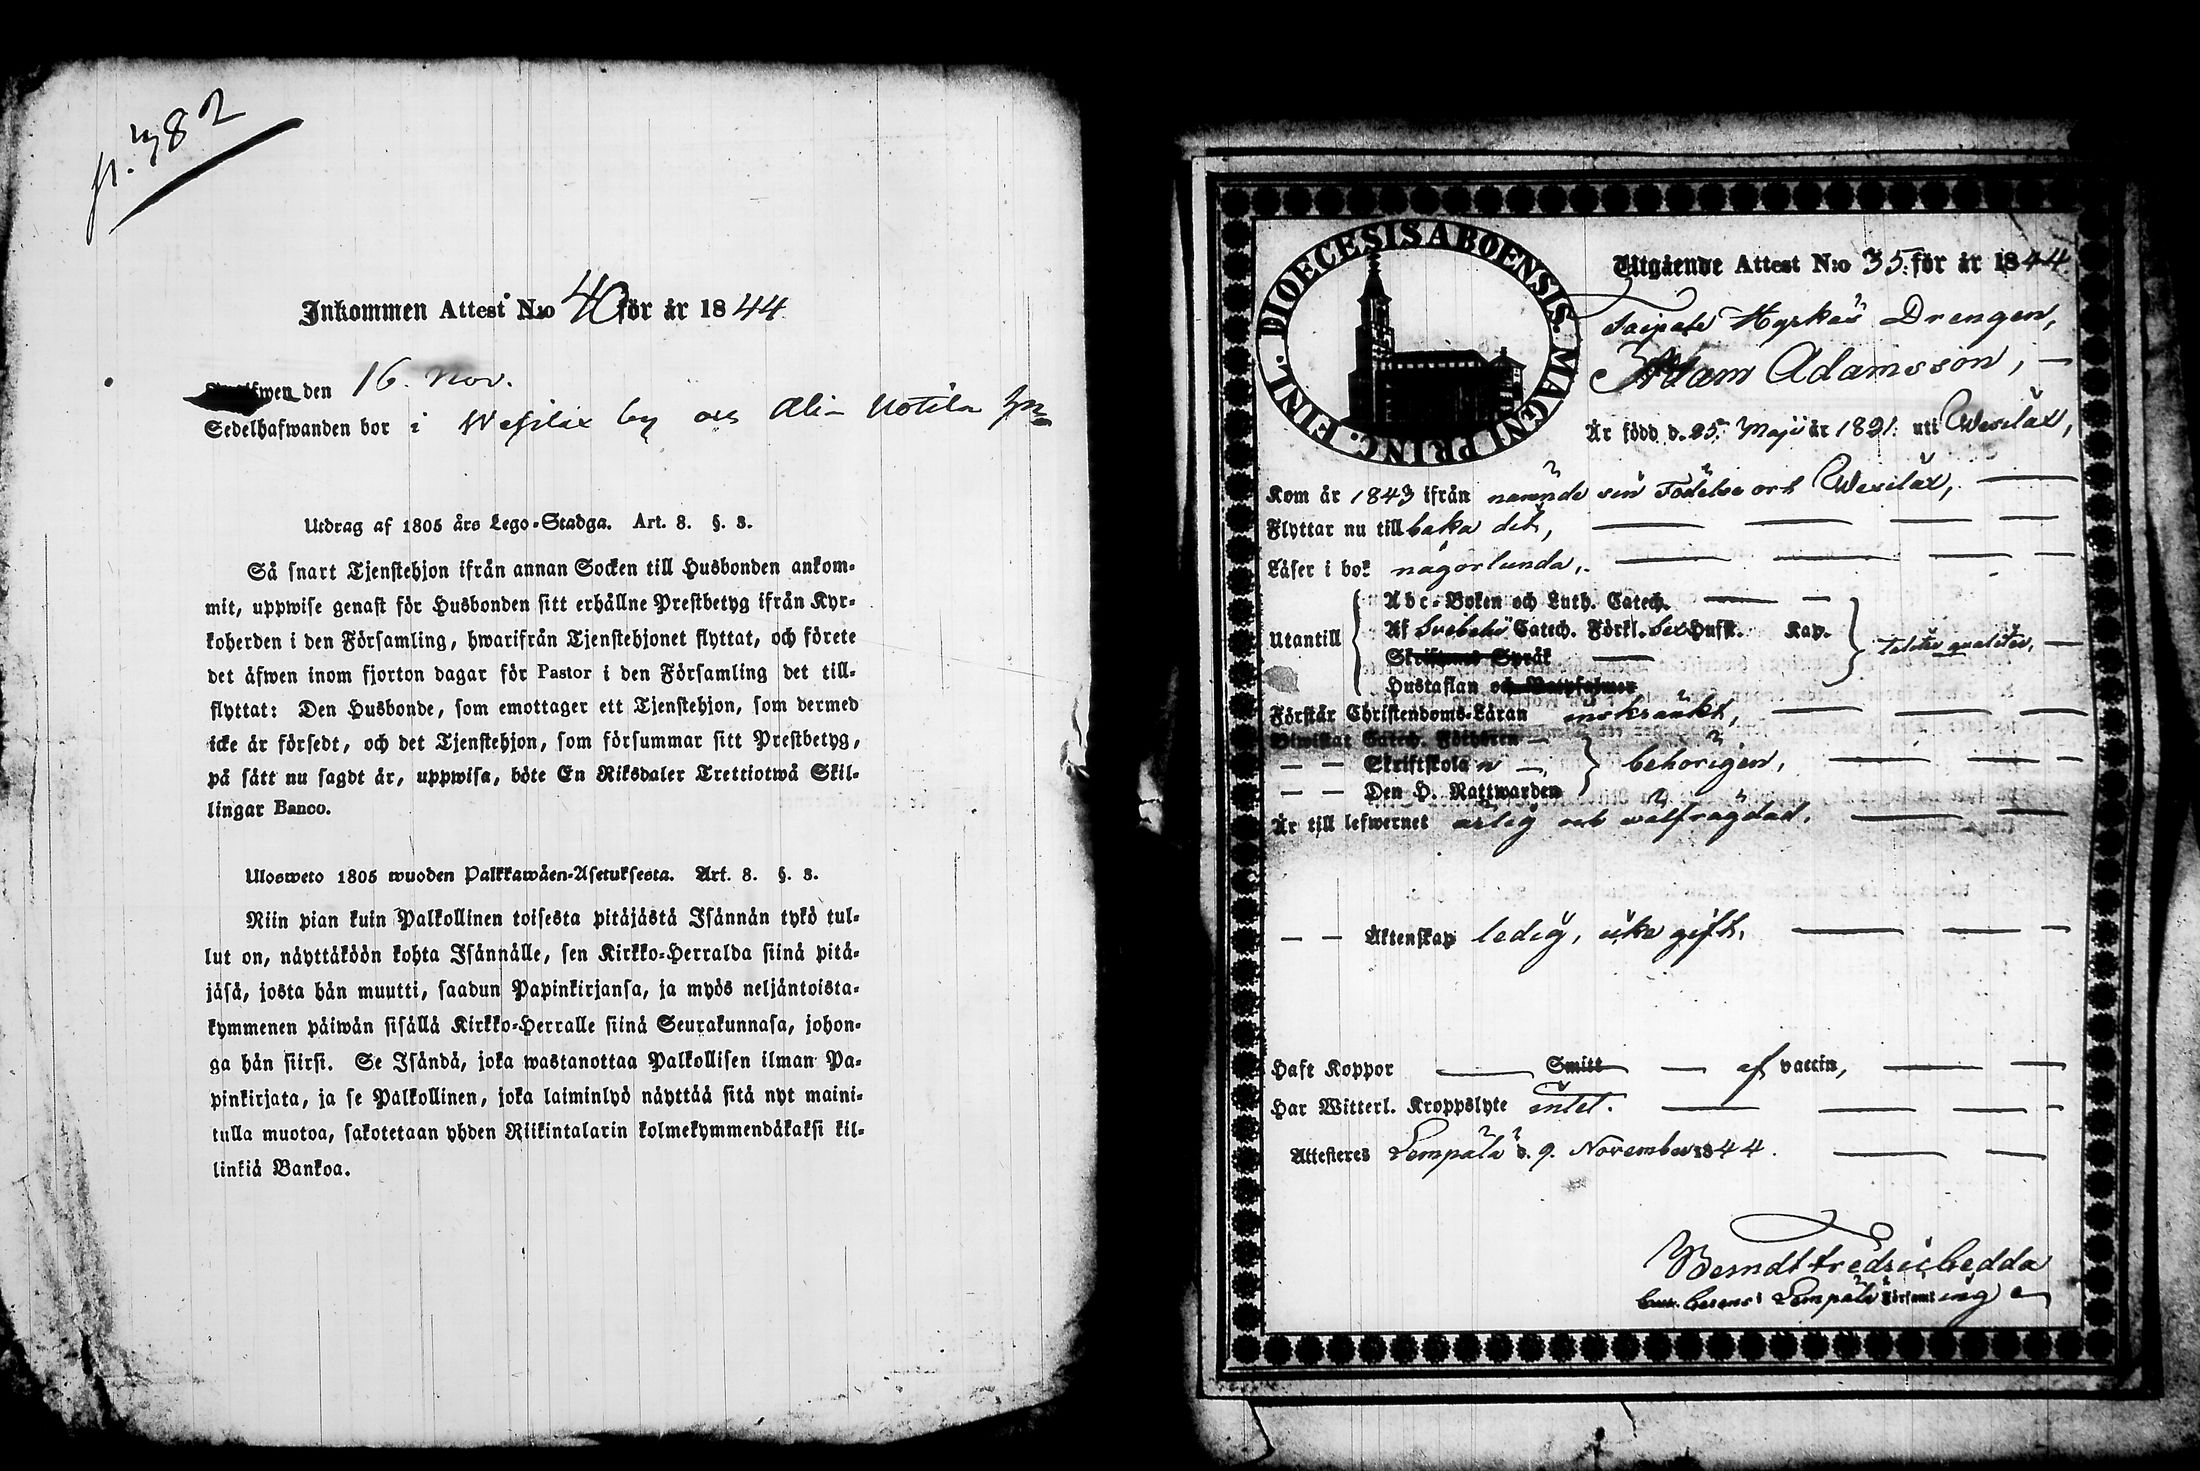 p. 782
Inkommen Attest N:o 40 för år 1844
den 16. Nov.
Sedelhafwanden bor i Wesilax by oss Ali- Uotila
Utdrag af 1805 års Lego-Stadga. Art. 8. §. 3.
Så snart Tjenstehjon ifrån annan Socken till Husbonden ankom-
mit, uppwise genast för Husbonden sitt erhållne Prestbetyg ifrån Kyr-
koherden i den Församling, hwarifrån Tjenstehjonet flyttat, och förete
det äfwen inom fjorton dagar för Pastor i den Församling det till-
flyttat: Den Husbonde, som emottager ett Tjenstehjon, som dermed
icke är försedt, och det Tjenstehjon, som försummar sitt Prestbetyg,
på sätt nu sagdt är, uppwisa, böte En Riksdaler Trettiotwå Skil-
lingar Banco.
Ulosweto 1805 wuoden Palkkawäen-Asetuksesta. Art. 8. §. 3.
Niin pian kuin Palkollinen toisesta pitäjästä Isännän tykö tul-
lut on, näyttäköön kohta Isännälle, sen Kirkko-Herralda siinä pitä-
jäsä, josta hän muutti, saadun Papinkirjansa, ja myös neljäntoista-
kymmenen päiwän sisällä Kirkko-Herralle siinä Seurakunnasa, johon-
ga hän siirsi. Se Isändä, joka wastanottaa Palkollisen ilman Pa-
pinkirjata, ja se Palkollinen, joka laiminlyö näyttää sitä nyt maini-
tulla muotoa, sakotetaan yhden Riikintalarin kolmekymmendäkaksi kil-
linkiä Bankoa.
DIOECESIS ABOENSIS. MAGNI PRINC. FINL.
Utgående Attest N:o 35. för år 1844.
Taipale Hyrkäs Drengen,
Adam Adamsson, —
Är född d. 25. Maji år 1821. uti Wesilax,
Kom år 1843 ifrån närnde sin Födelse ort Wesilax, —
Flyttar nu till baka dit, — — — —
Läser i bok någorlunda, — — — —
Utantill
Abc-Boken och Luth. Catech. — —
Af Svebelii Catech. Förkl. Sex Hufst. Kap.
Skriftenes Språk —
Hustaflan och Botpsalmer
Förstår Christendoms-Läran inskränkt, — — —
Biwistat Catech. Förhören —
— — Skriftskolan —
— — Den H. Nattwarden
behörigen, — — —
Är till lefwernet ärlig och välfrägdad, — —
— — Äktenskap ledig, icke gift, — — —
Haft Koppor — Smitt — af vaccin, — —
Har Witterl. Kroppslyte intet. — — — —
Attesteres Lempälä d. 9. November 1844. — —
Berndt Fredric Hedda
i Lempälä Församling